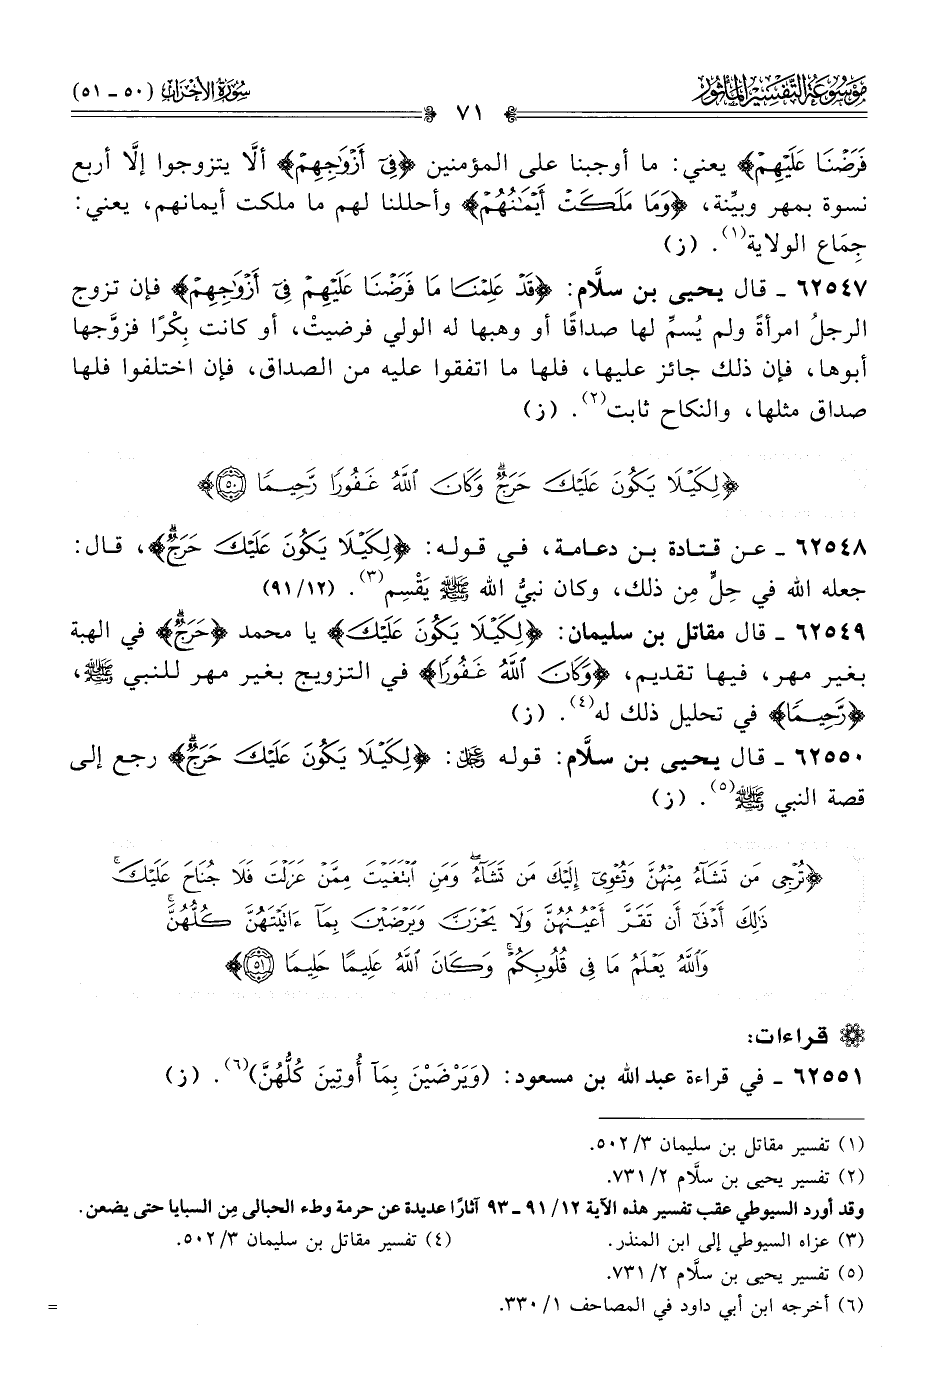 مَوْسُوعَة التَّفْسِيرِ المَأْثُور
٧١
سُورَةُ الأَحْزَاب (٥٠ - ٥١)
فَرَضْنَا عَلَيْهِمْ﴾ يعني: ما أوجبنا على المؤمنين ﴿فِىٓ أَزْوَٰجِهِمْ﴾ ألَّا يتزوجوا إلَّا أربع
نسوة بمهر وبيِّنة، ﴿وَمَا مَلَكَتْ أَيْمَٰنُهُمْ﴾ وأحللنا لهم ما ملكت أيمانهم، يعني:
جِمَاع الولاية(١). (ز)
٦٢٥٤٧ - قال يحيى بن سلَّام: ﴿قَدْ عَلِمْنَا مَا فَرَضْنَا عَلَيْهِمْ فِىٓ أَزْوَٰجِهِمْ﴾ فإن تزوج
الرجلُ امرأةً ولم يُسمِّ لها صداقًا أو وهبها له الولي فرضيتْ، أو كانت بِكْرًا فزوَّجها
أبوها، فإن ذلك جائز عليها، فلها ما اتفقوا عليه من الصداق، فإن اختلفوا فلها
صداق مثلها، والنكاح ثابت(٢). (ز)
﴿لِكَيْلَا يَكُونَ عَلَيْكَ حَرَجٌ ۗ وَكَانَ ٱللَّهُ غَفُورًا رَّحِيمًا ۝٥٠﴾
٦٢٥٤٨ - عن قتادة بن دعامة، في قوله: ﴿لِكَيْلَا يَكُونَ عَلَيْكَ حَرَجٌ ۗ﴾، قال:
جعله الله في حِلٍّ مِن ذلك، وكان نبيُّ الله ﷺ يَقْسِم(٣). (٩١/١٢)
٦٢٥٤٩ - قال مقاتل بن سليمان: ﴿لِكَيْلَا يَكُونَ عَلَيْكَ﴾ يا محمد ﴿حَرَجٌ ۗ﴾ في الهبة
بغير مهر، فيها تقديم، ﴿وَكَانَ ٱللَّهُ غَفُورًا﴾ في التزويج بغير مهر للنبي ﷺ،
﴿رَّحِيمًا﴾ في تحليل ذلك له(٤). (ز)
٦٢٥٥٠ - قال يحيى بن سلَّام: قوله ﷻ: ﴿لِكَيْلَا يَكُونَ عَلَيْكَ حَرَجٌ ۗ﴾ رجع إلى
قصة النبي ﷺ(٥). (ز)
﴿تُرْجِى مَن تَشَآءُ مِنْهُنَّ وَتُـْٔوِىٓ إِلَيْكَ مَن تَشَآءُ ۖ وَمَنِ ٱبْتَغَيْتَ مِمَّنْ عَزَلْتَ فَلَا جُنَاحَ عَلَيْكَ ۚ
ذَٰلِكَ أَدْنَىٰٓ أَن تَقَرَّ أَعْيُنُهُنَّ وَلَا يَحْزَنَّ وَيَرْضَيْنَ بِمَآ ءَاتَيْتَهُنَّ كُلُّهُنَّ ۚ
وَٱللَّهُ يَعْلَمُ مَا فِى قُلُوبِكُمْ ۚ وَكَانَ ٱللَّهُ عَلِيمًا حَلِيمًا ۝٥١﴾
قراءات:
٦٢٥٥١ - في قراءة عبد الله بن مسعود: (وَيَرْضَيْنَ بِمَآ أُوتِينَ كُلُّهُنَّ)(٦). (ز)
(١) تفسير مقاتل بن سليمان ٥٠٢/٣.
(٢) تفسير يحيى بن سلَّام ٧٣١/٢.
وقد أورد السيوطي عقب تفسير هذه الآية ٩١/١٢ - ٩٣ آثارًا عديدة عن حرمة وطء الحبالى مِن السبايا حتى يضعن.
(٣) عزاه السيوطي إلى ابن المنذر. (٤) تفسير مقاتل بن سليمان ٥٠٢/٣.
(٥) تفسير يحيى بن سلَّام ٧٣١/٢.
(٦) أخرجه ابن أبي داود في المصاحف ٣٣٠/١.
=